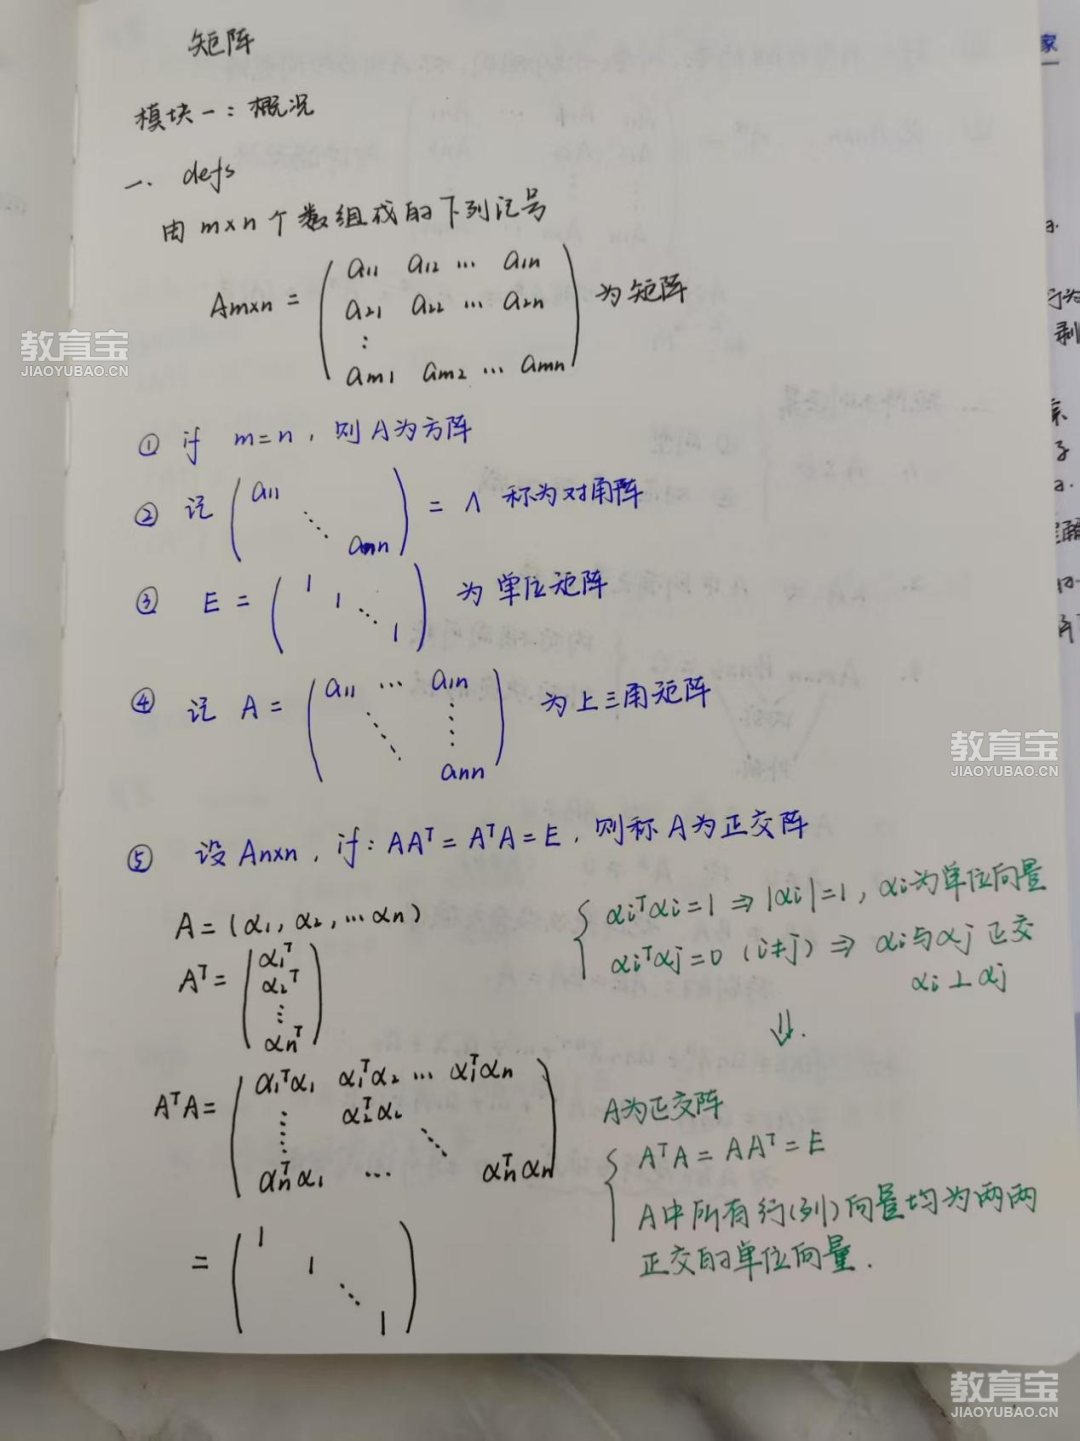 矩阵
模块一：概况
一. defs
由 m×n 个数组成的下列记号
Am×n = ( a11 a12 … a1n
a21 a22 … a2n
⋮
am1 am2 … amn ) 为矩阵
① if m=n, 则A为方阵
② 记 ( a11 ⋱ ann ) = Λ 称为对角阵
③ E = ( 1 1 ⋱ 1 ) 为单位矩阵
④ 记 A = ( a11 … a1n ⋱ ⋮ ann ) 为上三角矩阵
⑤ 设 An×n, if: AAᵀ = AᵀA = E, 则称A为正交阵
A = (α1, α2, … αn)
Aᵀ = ( α1ᵀ
α2ᵀ
⋮
αnᵀ )
{ αiᵀαi = 1 ⇒ |αi| = 1, αi为单位向量
αiᵀαj = 0 (i≠j) ⇒ αi与αj正交
αi ⊥ αj
⇓.
AᵀA = ( α1ᵀα1 α1ᵀα2 … α1ᵀαn
⋮ α2ᵀα2 ⋱
αnᵀα1 … αnᵀαn )
= ( 1 1 ⋱ 1 )
A为正交阵
{ AᵀA = AAᵀ = E
A中所有行(列)向量均为两两
正交的单位向量.
家
教育宝
JIAOYUBAO.CN
教育宝
JIAOYUBAO.CN
教育宝
JIAOYUBAO.CN